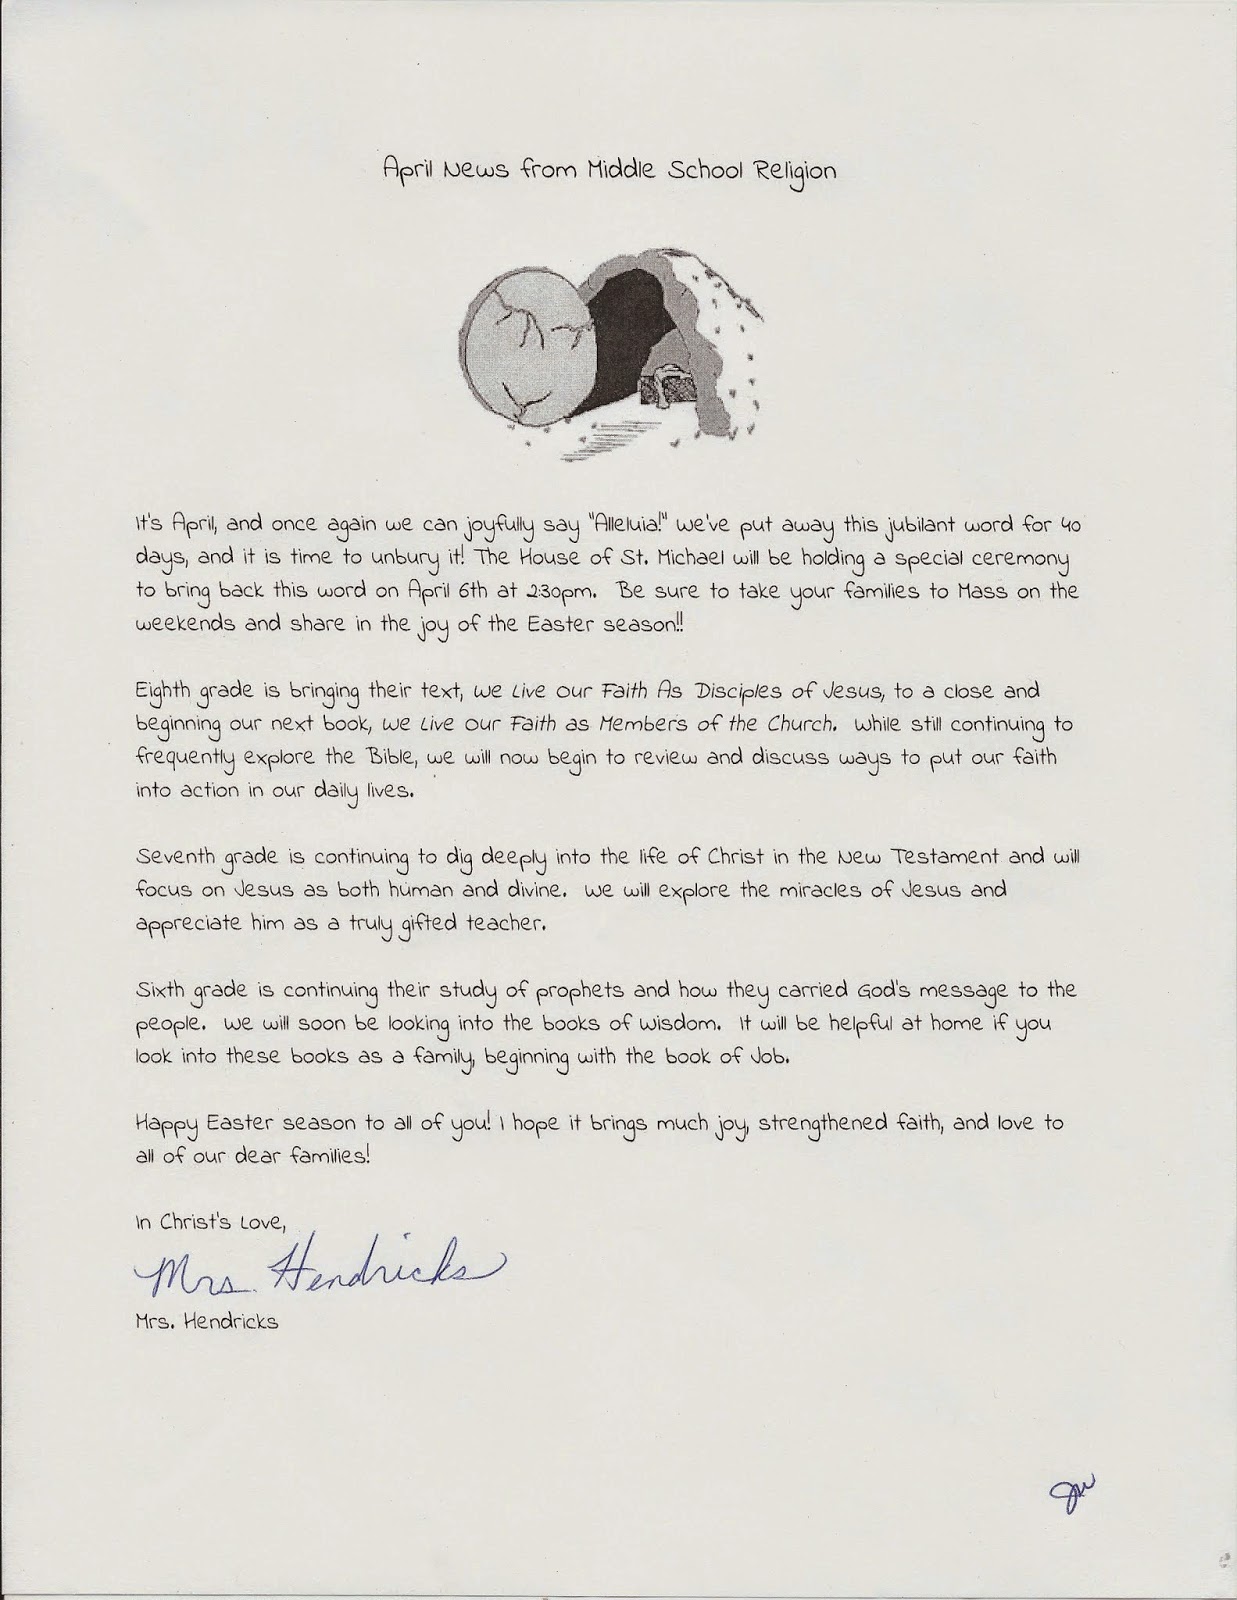 April News from Middle School Religion
It's April, and once again we can joyfully say "Alleluia!" We've put away this jubilant word for 40
days, and it is time to unbury it! The House of St. Michael will be holding a special ceremony
to bring back this word on April 6th at 2:30pm. Be sure to take your families to Mass on the
weekends and share in the joy of the Easter season!!
Eighth grade is bringing their text, We Live Our Faith As Disciples of Jesus, to a close and
beginning our next book, We Live Our Faith as Members of the Church. While still continuing to
frequently explore the Bible, we will now begin to review and discuss ways to put our faith
into action in our daily lives.
Seventh grade is continuing to dig deeply into the life of Christ in the New Testament and will
focus on Jesus as both human and divine. We will explore the miracles of Jesus and
appreciate him as a truly gifted teacher.
Sixth grade is continuing their study of prophets and how they carried God's message to the
people. We will soon be looking into the books of wisdom. It will be helpful at home if you
look into these books as a family, beginning with the book of Job.
Happy Easter season to all of you! I hope it brings much joy, strengthened faith, and love to
all of our dear families!
In Christ's Love,
Mrs. Hendricks
Mrs. Hendricks